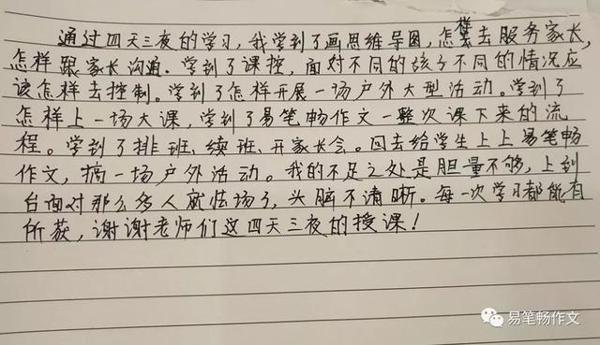 通过四天三夜的学习，我学到了画思维导图，怎样去服务家长，
怎样跟家长沟通．学到了课控，面对不同的孩子不同的情况应
该怎样去控制。学到了怎样开展一场户外大型活动。学到了
怎样上一场大课，学到了易笔畅作文一整次课下来的流
程。学到了排班、续班、开家长会。回去给学生上上易笔畅
作文，搞一场户外活动。我的不足之处是胆量不够，上到
台面对那么多人就怯场了，头脑不清晰。每一次学习都能有
所获，谢谢老师们这四天三夜的授课！
易笔畅作文